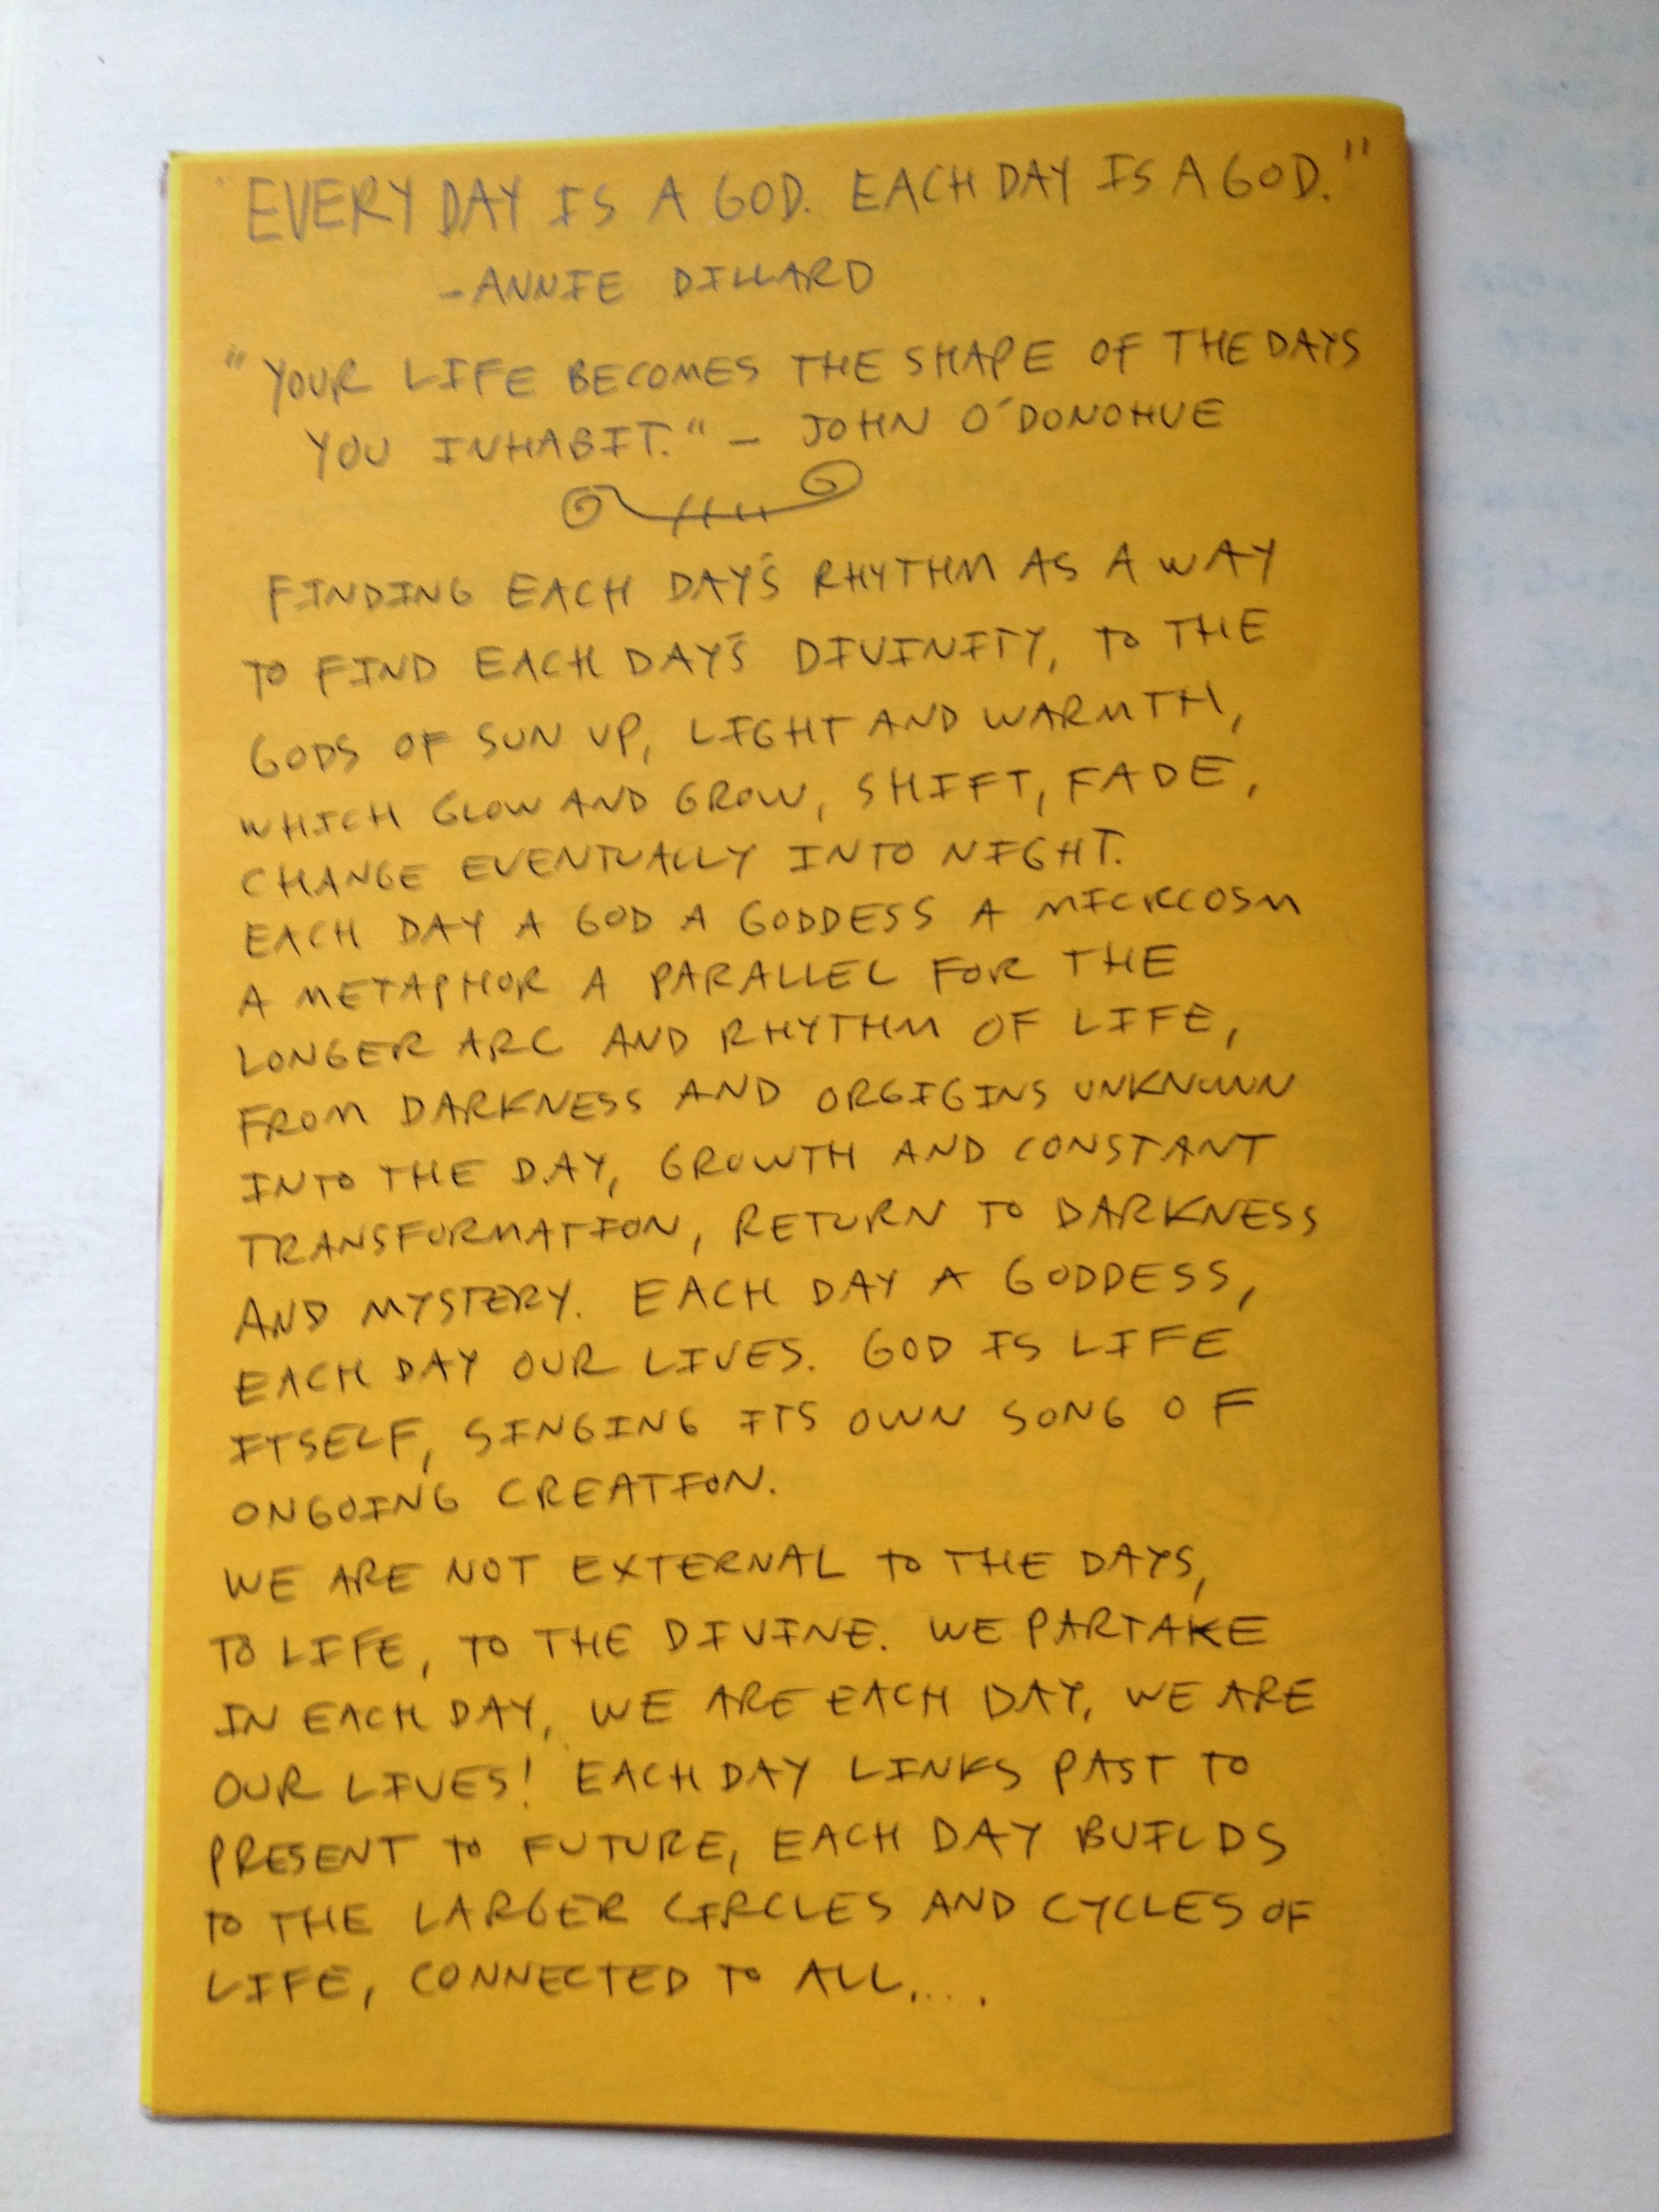 "EVERY DAY IS A GOD. EACH DAY IS A GOD."
-ANNIE DILLARD
"YOUR LIFE BECOMES THE SHAPE OF THE DAYS
YOU INHABIT." - JOHN O'DONOHUE
FINDING EACH DAY'S RHYTHM AS A WAY
TO FIND EACH DAY'S DIVINITY, TO THE
GODS OF SUN UP, LIGHT AND WARMTH,
WHICH GLOW AND GROW, SHIFT, FADE,
CHANGE EVENTUALLY INTO NIGHT.
EACH DAY A GOD A GODDESS A MICRCOSM
A METAPHOR A PARALLEL FOR THE
LONGER ARC AND RHYTHM OF LIFE,
FROM DARKNESS AND ORGIGINS UNKNOWN
INTO THE DAY, GROWTH AND CONSTANT
TRANSFORMATION, RETURN TO DARKNESS
AND MYSTERY. EACH DAY A GODDESS,
EACH DAY OUR LIVES. GOD IS LIFE
ITSELF, SINGING ITS OWN SONG OF
ONGOING CREATION.
WE ARE NOT EXTERNAL TO THE DAYS,
TO LIFE, TO THE DIVINE. WE PARTAKE
IN EACH DAY, WE ARE EACH DAY, WE ARE
OUR LIVES! EACH DAY LINKS PAST TO
PRESENT TO FUTURE, EACH DAY BUILDS
TO THE LARGER CIRCLES AND CYCLES OF
LIFE, CONNECTED TO ALL....